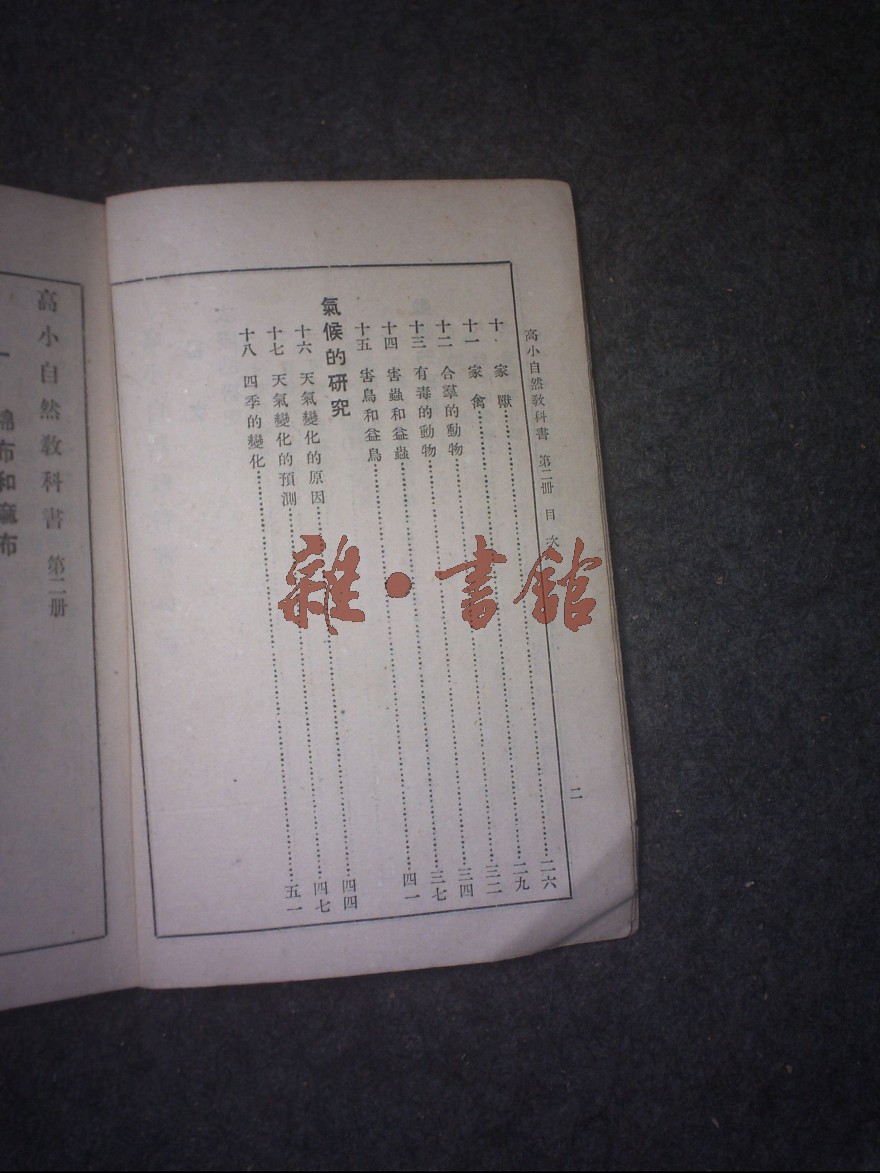 高小自然教科書 第二冊 目次 二
十 家獸 二六
十一 家禽 二九
十二 合羣的動物 三二
十三 有毒的動物 三四
十四 害蟲和益蟲 三七
十五 害鳥和益鳥 四一
氣候的研究
十六 天氣變化的原因 四四
十七 天氣變化的預測 四七
十八 四季的變化 五一
高小自然教科書 第二冊
一 棉布和麻布
雜·書館